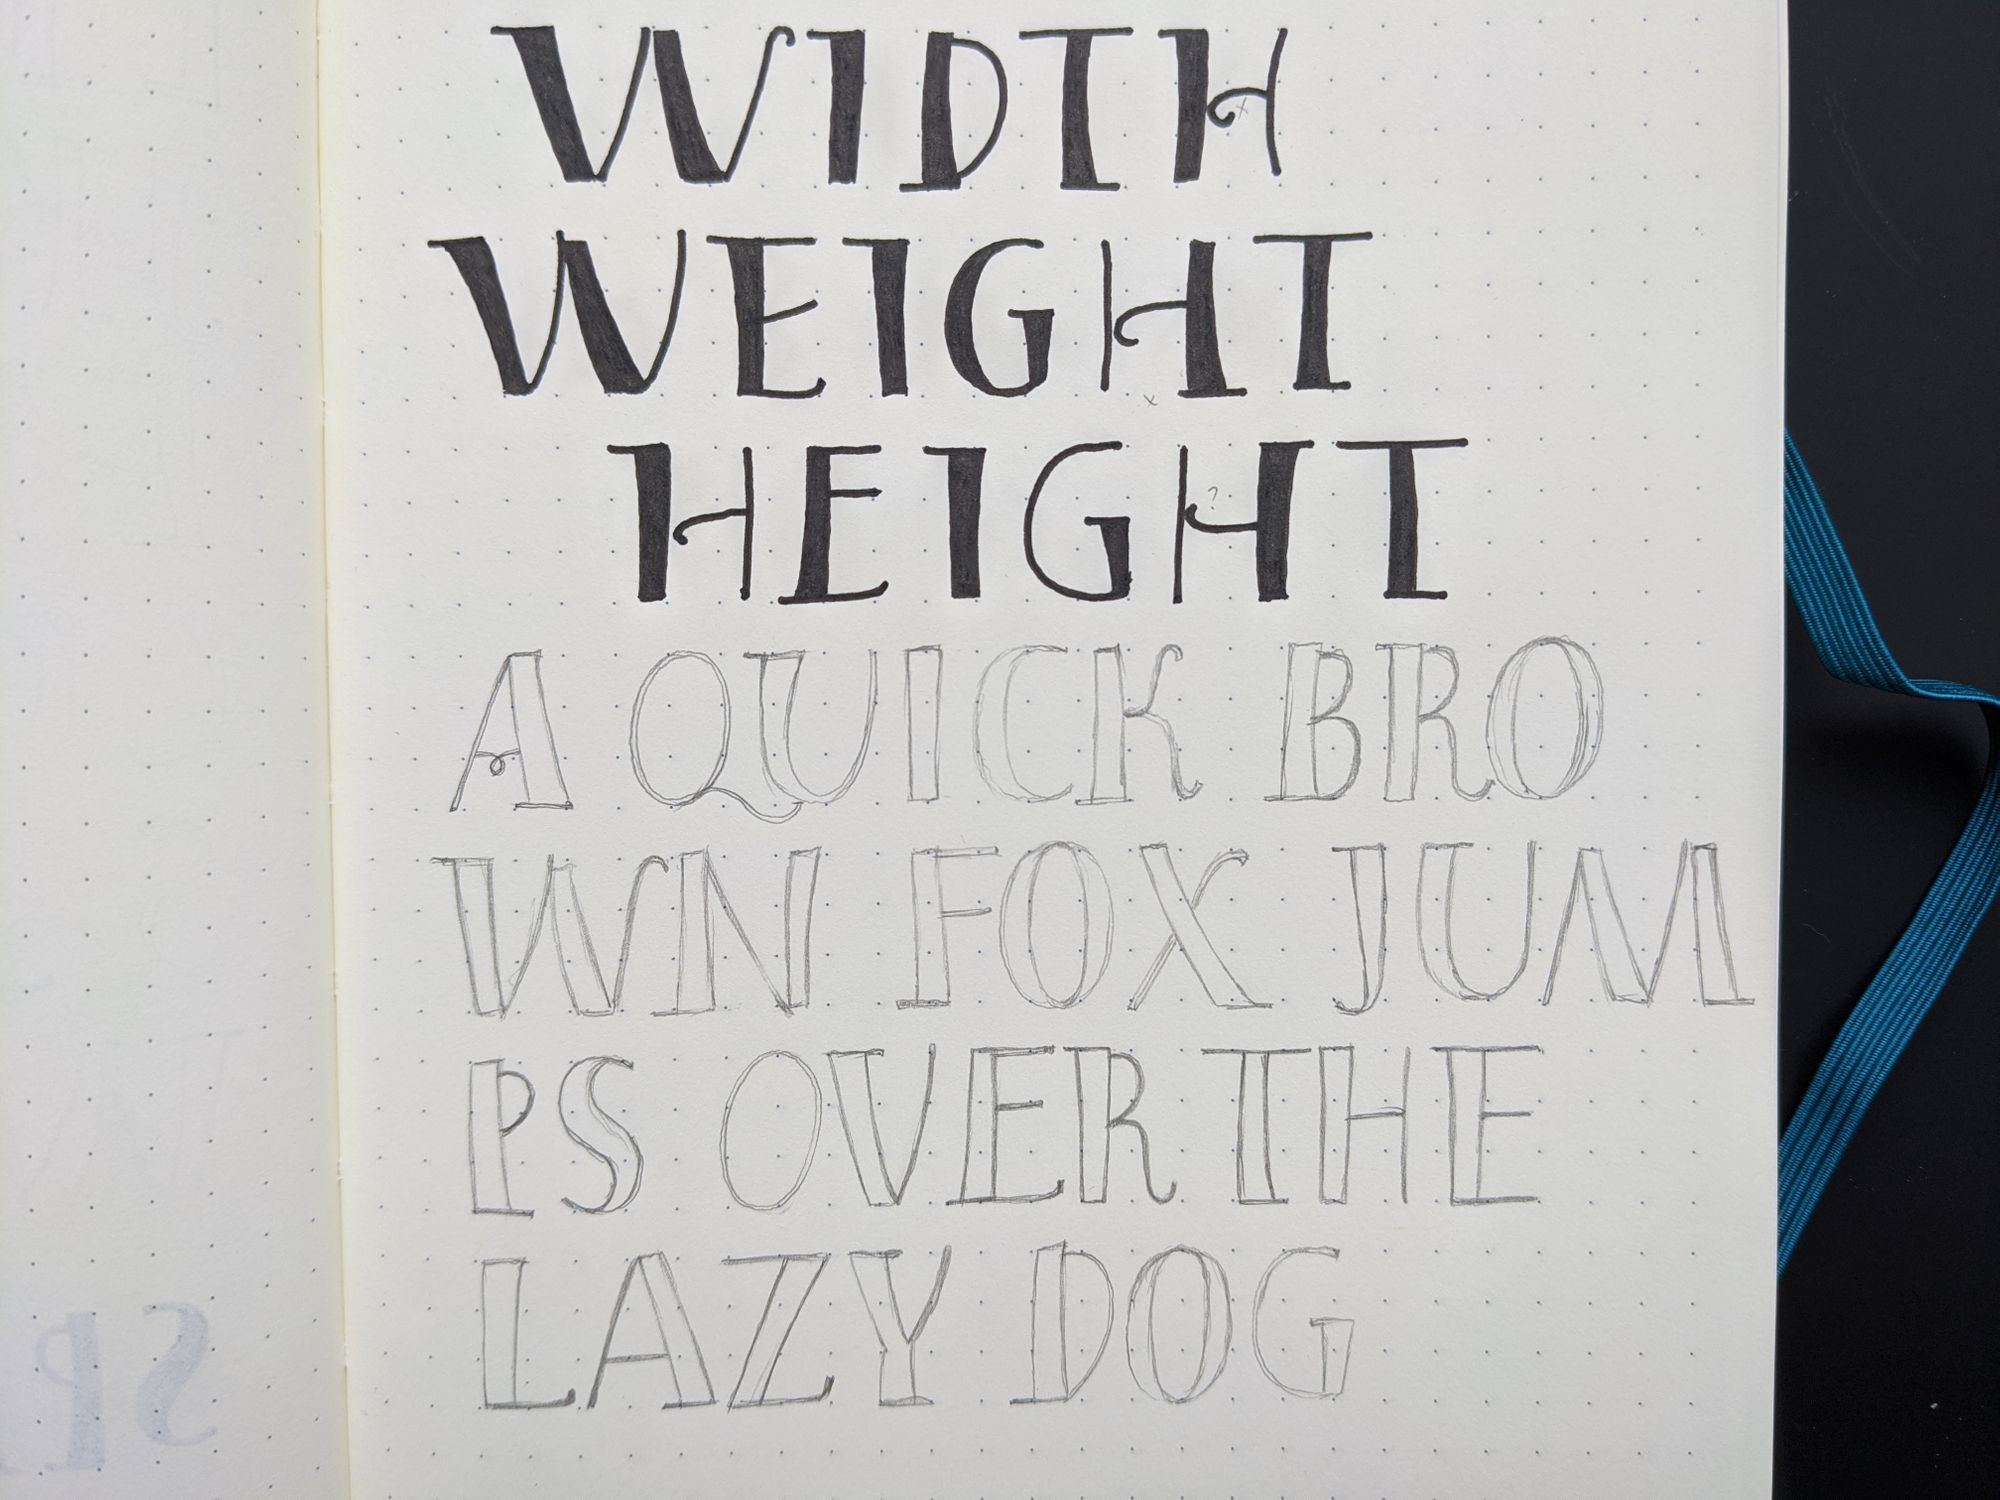 WIDTH
WEIGHT
HEIGHT
A QUICK BRO
WN FOX JUM
PS OVER THE
LAZY DOG